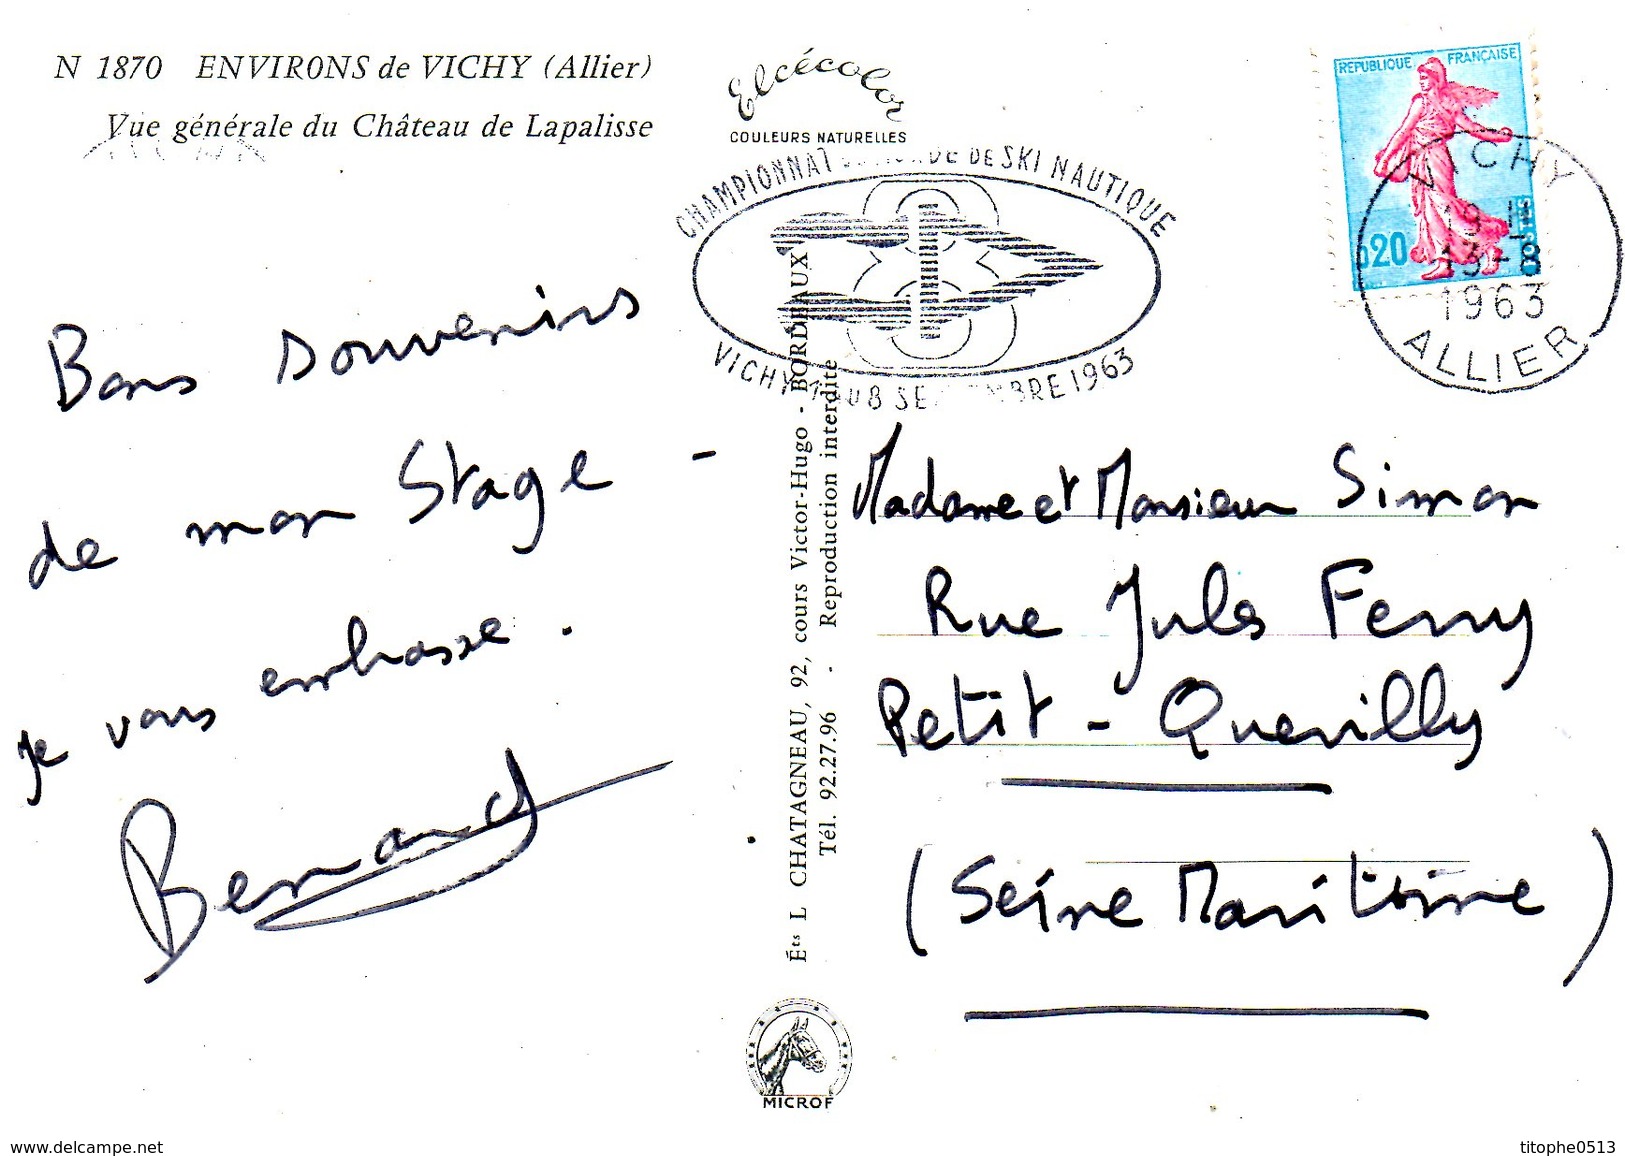 N 1870 ENVIRONS de VICHY (Allier)
Vue générale du Château de Lapalisse
Elcécolor
COULEURS NATURELLES
CHAMPIONNAT DE DE SKI NAUTIQUE
VICHY 1963
REPUBLIQUE FRANÇAISE
0,20
POSTES
VICHY
13-8
1963
ALLIER
Bons souvenirs
de mon Stage -
je vous embrasse.
Bernard
Éts L CHATAGNEAU, 92, cours Victor-Hugo - BORDEAUX
Tél. 92.27.96 - Reproduction interdite
Madame et Monsieur Simon
Rue Jules Ferry
Petit-Quevilly
(Seine Maritime)
MICROF
www.delcampe.net
titophe0513